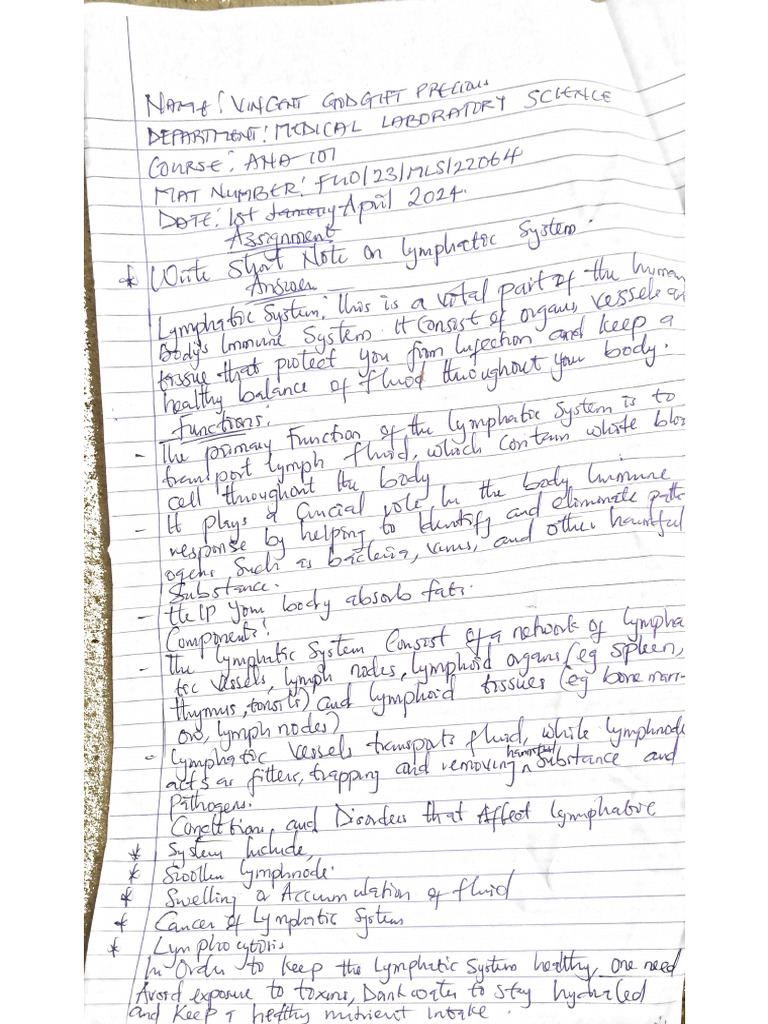 NAME: VINCENT GODGIFT PRECIOUS
DEPARTMENT: MEDICAL LABORATORY SCIENCE
COURSE: ANA 101
MAT NUMBER: FUO/23/MLS/22064
DATE: 1st January April 2024.
Assignment
* Write Short Note on Lymphatic System.
Answer
Lymphatic System: This is a vital part of the human
Body's Immune System. It Consist of organs, vessels an
tissue that protect you from Infection and keep a
healthy balance of fluid throughout your body.
Functions:
- The primary Function of the lymphatic System is to
transport lymph fluid, which contain white bloo
cell throughout the body
- It plays a crucial role In the body Immune
response by helping to Identify and eliminate patho
ogens such as bacteria, virus, and other harmful
Substance.
- Help your body absorb fats.
Components:
- The lymphatic System Consist of a network of lympha
tic vessels, lymph nodes, lymphoid organs (eg spleen,
thymus, tonsils) and lymphoid tissues (eg bone marr-
ow, lymph nodes)
- Lymphatic vessels transports fluid, while lymphnode
acts as filters, trapping and removing harmful substance and
Pathogens.
Conditions and Disorders that Affect lymphatic
* System Include,
* Swollen lymphnode.
* Swelling or Accumulation of fluid
* Cancer of Lymphatic System
* Lymphocytosis
In Order to keep the Lymphatic System healthy, one need
Avoid exposure to toxins, Drink water to stay hydrated
and Keep a healthy nutrient intake.